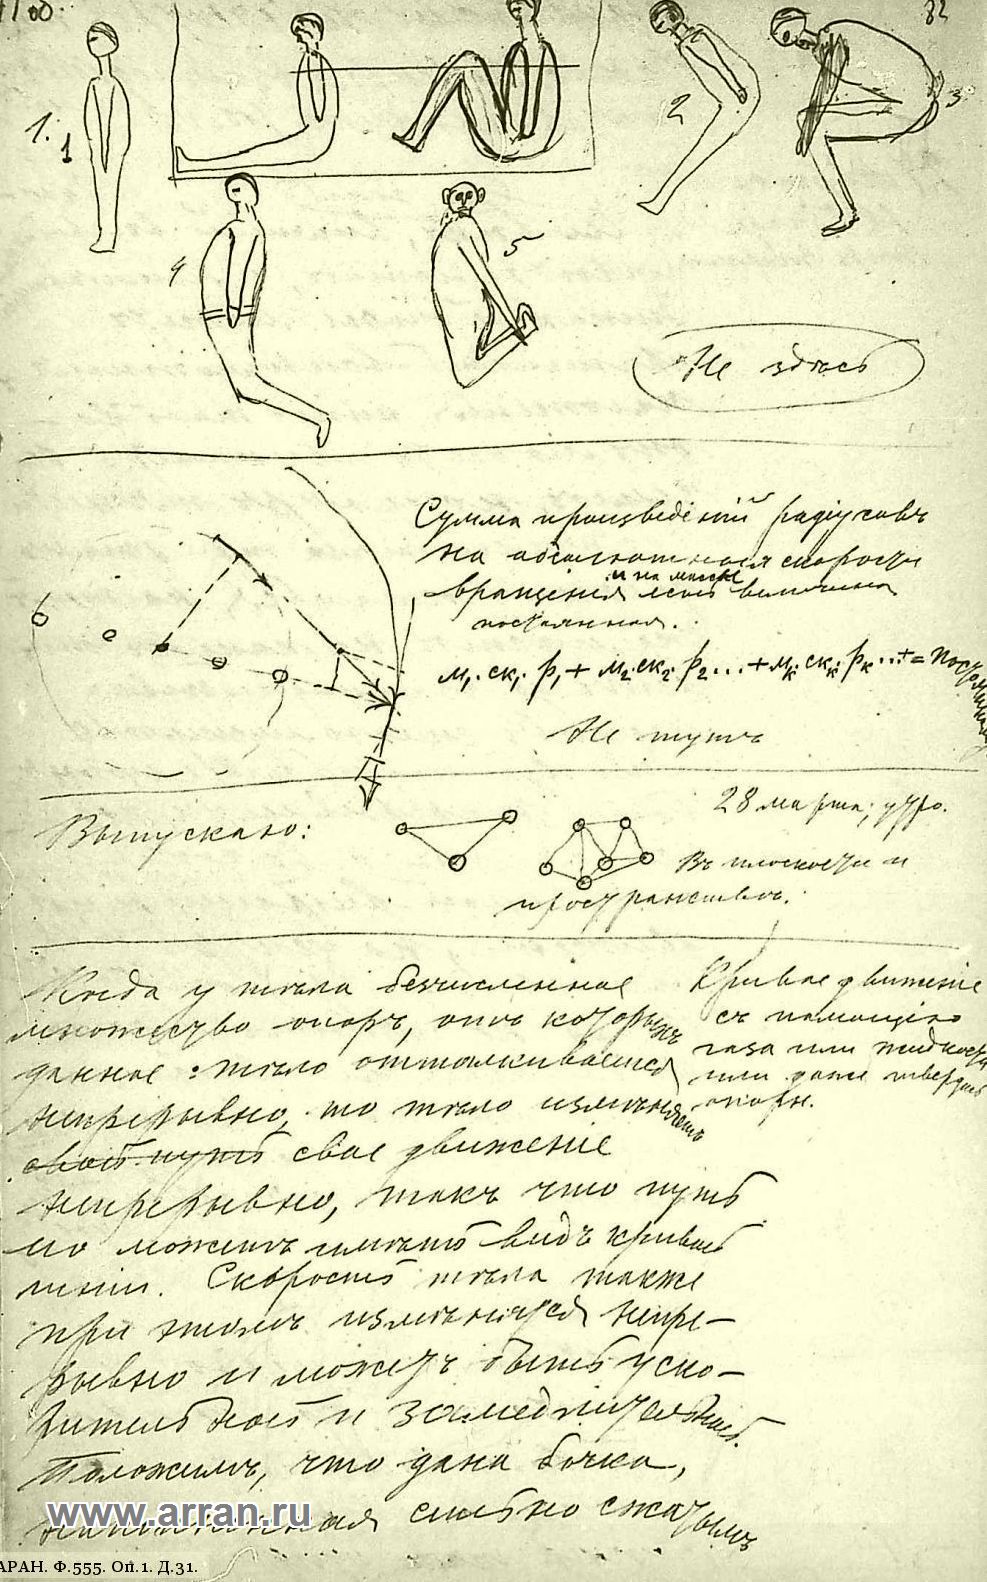 82
1.
1
2
3
4
5
Не здѣсь
Сумма произведенiй радiусовъ
на абсолютныя скорости
и на массы
вращенiя есть величина
постоянная.
м₁. ск₁. р₁ + м₂. ск₂. р₂ ... + мк. скк. рк ... + = постоянная
Не тутъ
28 марта, утро.
Выпускаю:
Въ плоскости и
пространствѣ.
Когда у тѣла безчисленное
множество опоръ, отъ которыхъ
данное тѣло отталкивается
непрерывно, то тѣло измѣняетъ
свой путь свое движенiе
непрерывно, такъ что путь
его можетъ имѣть видъ кривой
линiи. Скорость тѣла также
при этомъ измѣняется непре-
рывно и можетъ быть уско-
рительной и замедлительной.
Положимъ, что дана бочка,
наполненная сильно сжатымъ
Кривое движенiе
съ помощiю
газа или жидкости
или даже твердой
опоры.
www.arran.ru
АРАН. Ф.555. Оп.1. Д.31.